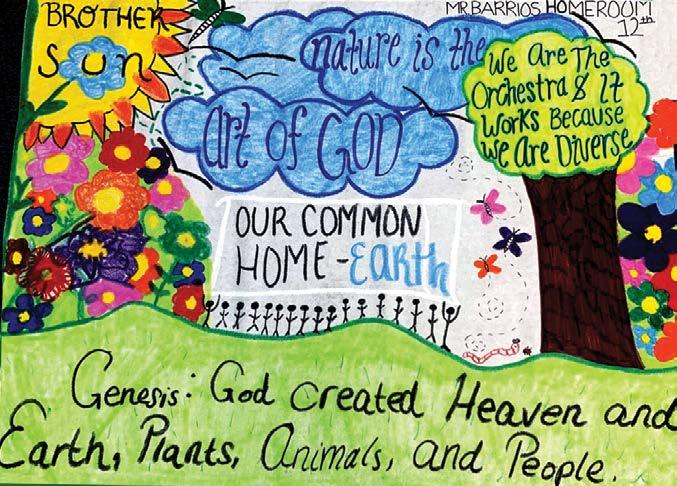 BROTHER
Sun
MR BARRIOS HOMEROOM
12th
nature is the
art of GOD
We Are The
Orchestra & It
Works Because
We Are Diverse
OUR COMMON
HOME - Earth
Genesis: God created Heaven and
Earth, Plants, Animals, and People.